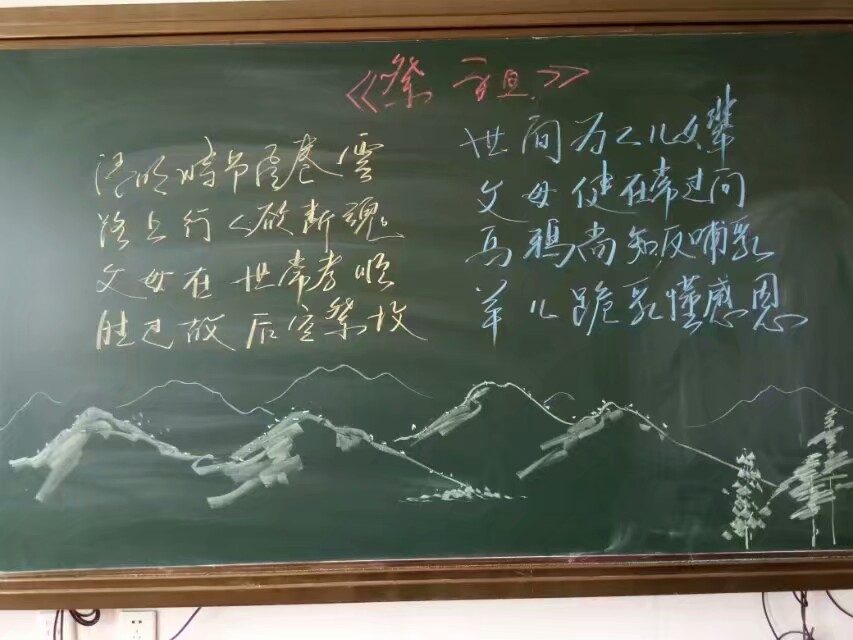 《祭祖》
清明时节风卷雲
路上行人欲断魂。
父母在世常孝顺
胜已故后空祭坟
世间万人儿女辈
父母健在常过问
乌鸦尚知反哺乳
羊儿跪乳懂感恩